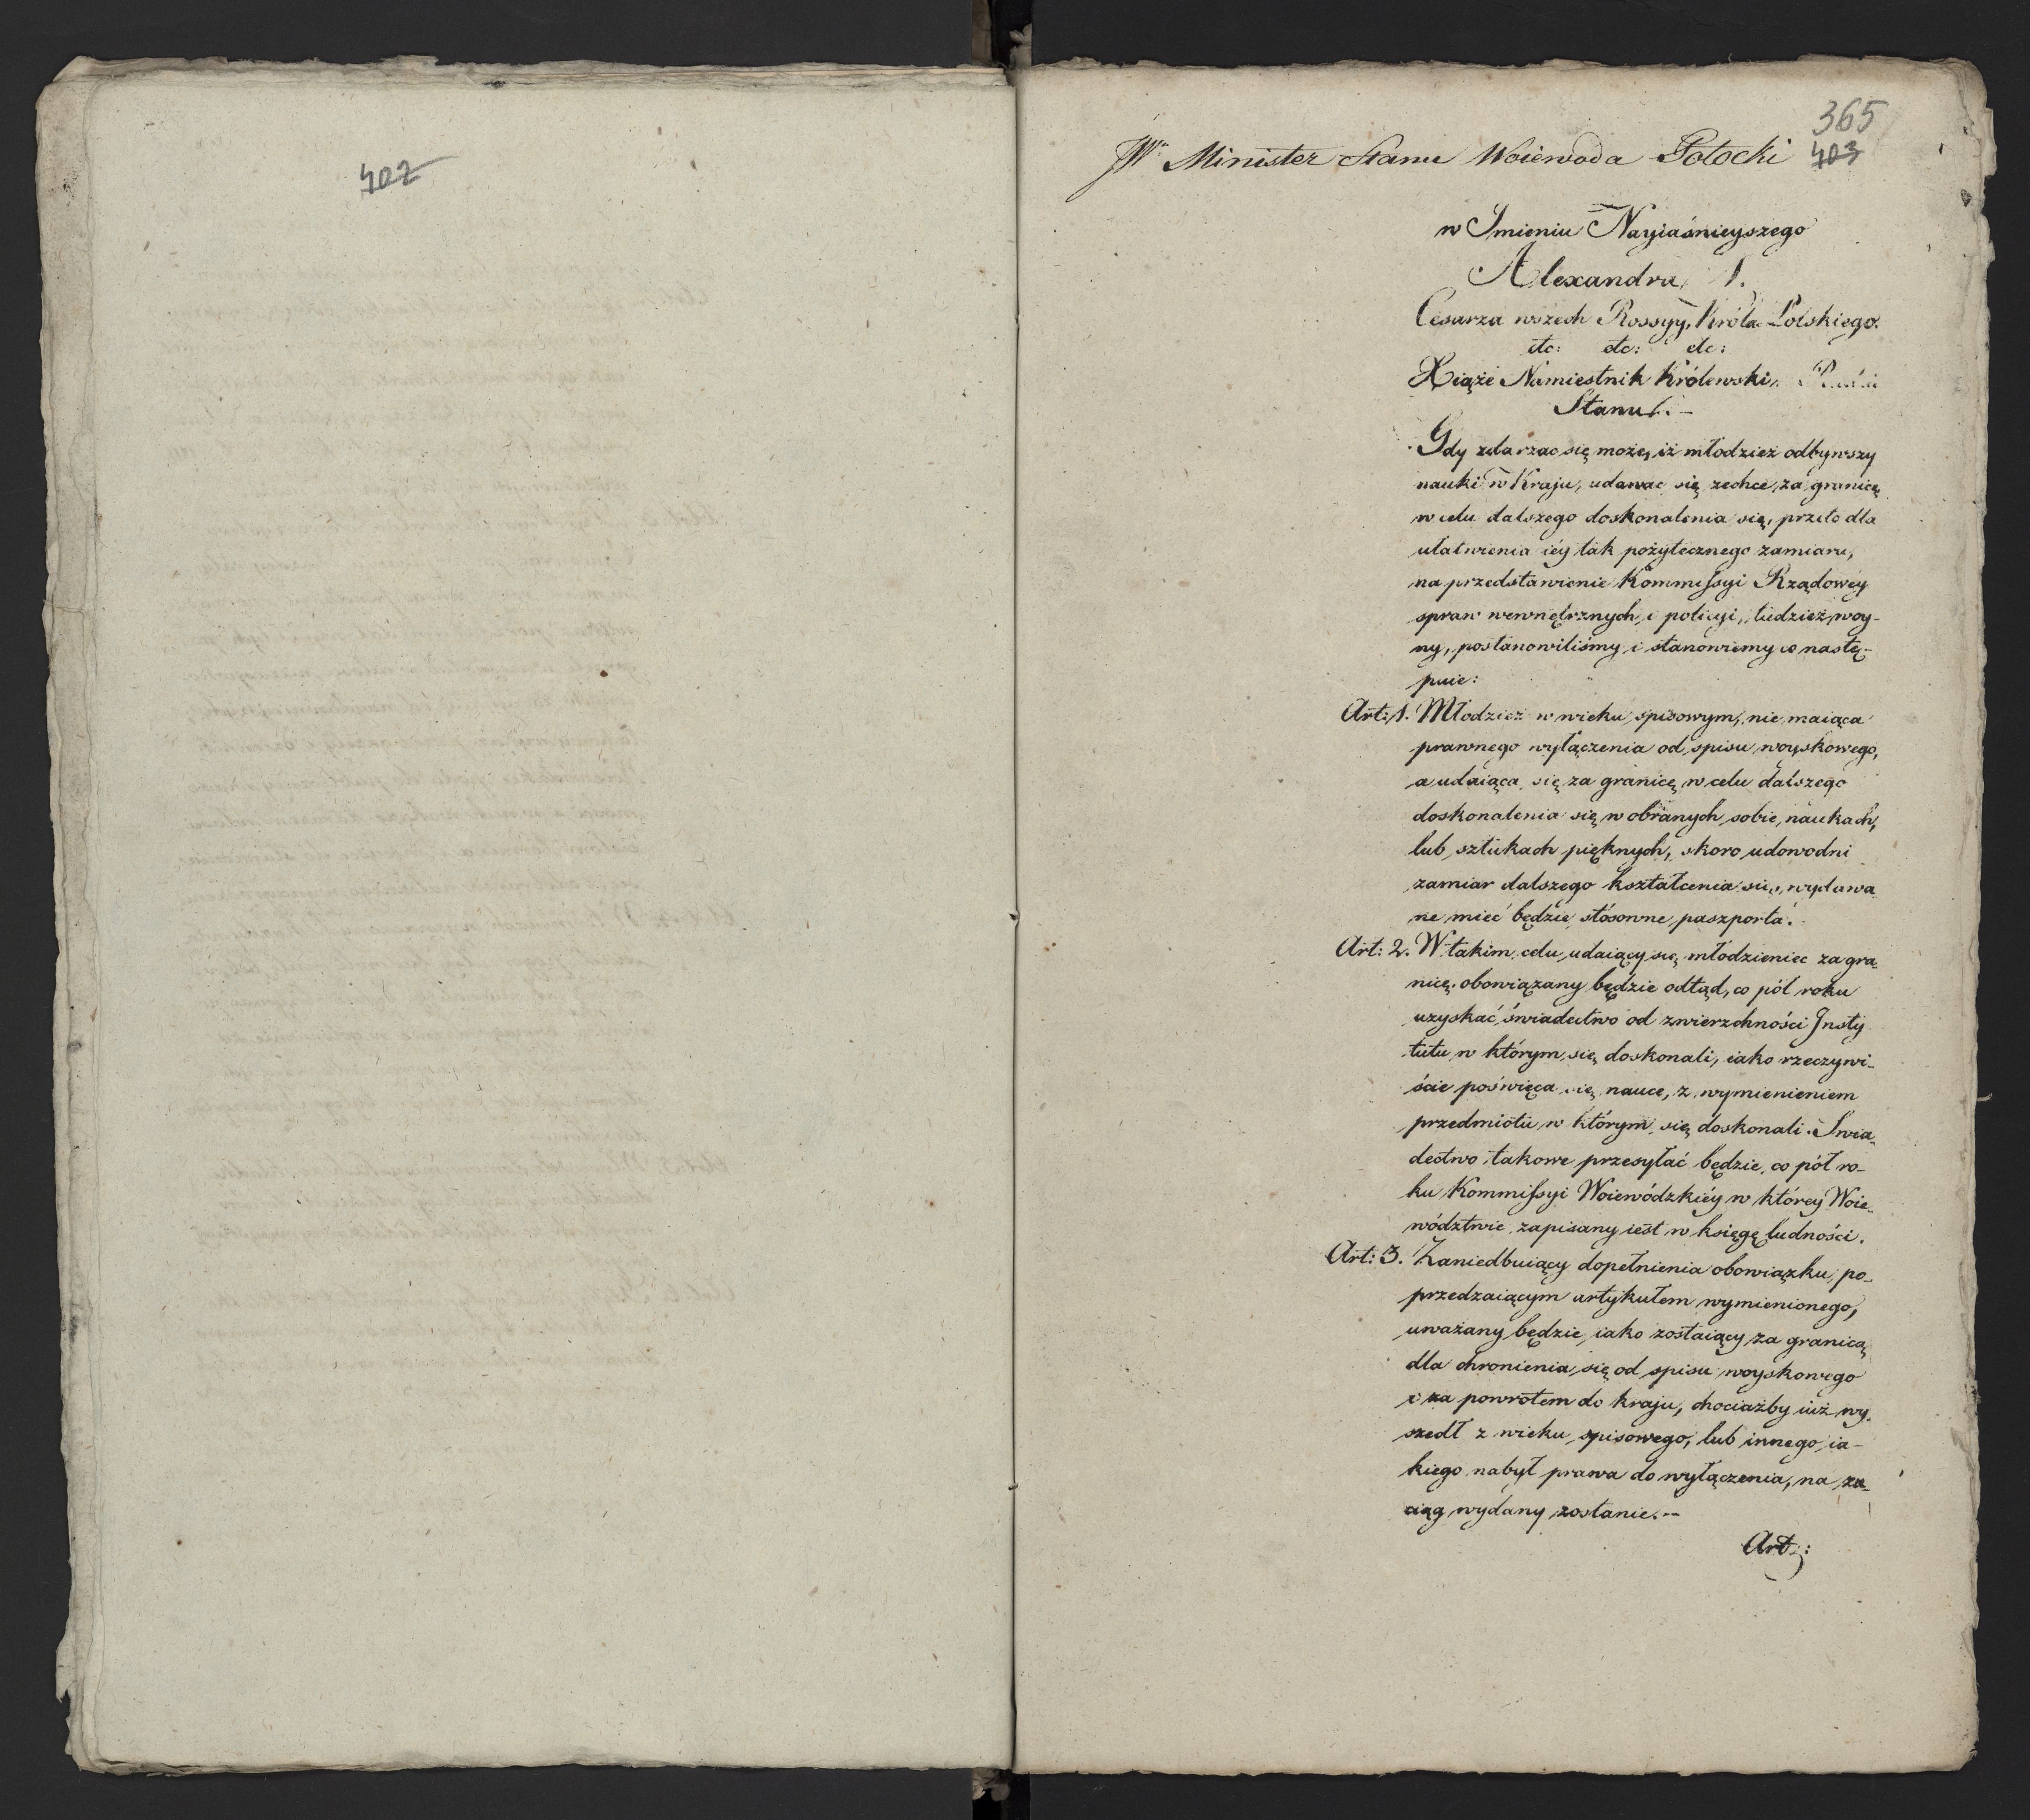 402
365
403
JW Minister Stanu Woiewoda Potocki
w Imieniu Nayiaśnieyszego
Alexandra I.
Cesarza wszech Rossyy, Króla Polskiego.
etc: etc: etc:
Xiąże Namiestnik Królewski
Stanu
Gdy zdarzac się może, iż młodzież odbywszy
nauki w Kraju, udawac się zechce, za granicę
w celu dalszego doskonalenia się, przeto dla
ułatwienia iéy tak pożytecznego zamiaru,
na przedstawienie Kommissyi Rządowéy
spraw wewnętrznych i policyi, tudzież woy-
ny, postanowiliśmy i stanowiemy co nastę-
puie:
Art: 1. Młodzież w wieku spisowym, nie maiąca
prawnego wyłączenia od spisu woyskowego,
a udaiąca się za granicę w celu dalszego
doskonalenia się w obranych sobie naukach,
lub sztukach pięknych, skoro udowodni
zamiar dalszego kształcenia się, wydawa
ne mieć będzie stósowne paszporta.
Art: 2. W takim celu udaiący się młodzieniec za gra-
nicę. obowiązany będzie odtąd, co pół roku
uzyskać świadectwo od zwierzchności Insty
tutu w którym się doskonali, iako rzeczywi-
ście poświęca się nauce, z wymienieniem
przedmiotu w którym się doskonali. Swia-
dectwo takowe przesyłać będzie co pół ro-
ku Kommissyi Woiewódzkiéy w którey Woie-
wództwie zapisany iest w księgę ludności.
Art: 3. Zaniedbuiący dopełnienia obowiązku po-
przedzaiącym artykułem wymienionego,
uważany będzie iako zostaiący za granicą
dla chronienia się od spisu woyskowego
i za powrotem do kraju, chociażby iuż wy-
szedł z wieku spisowego, lub innego ia-
kiego nabył prawa do wyłączenia, na za-
ciąg wydany zostanie.
Art: